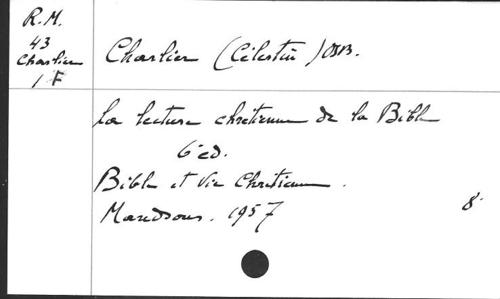 R.M.
43
Charlier
1 F
Charlier (Célestin) OSB.
La lecture chrétienne de la Bible
6 éd.
Bible et Vie Chrétienne.
Maredsous. 1957
8°